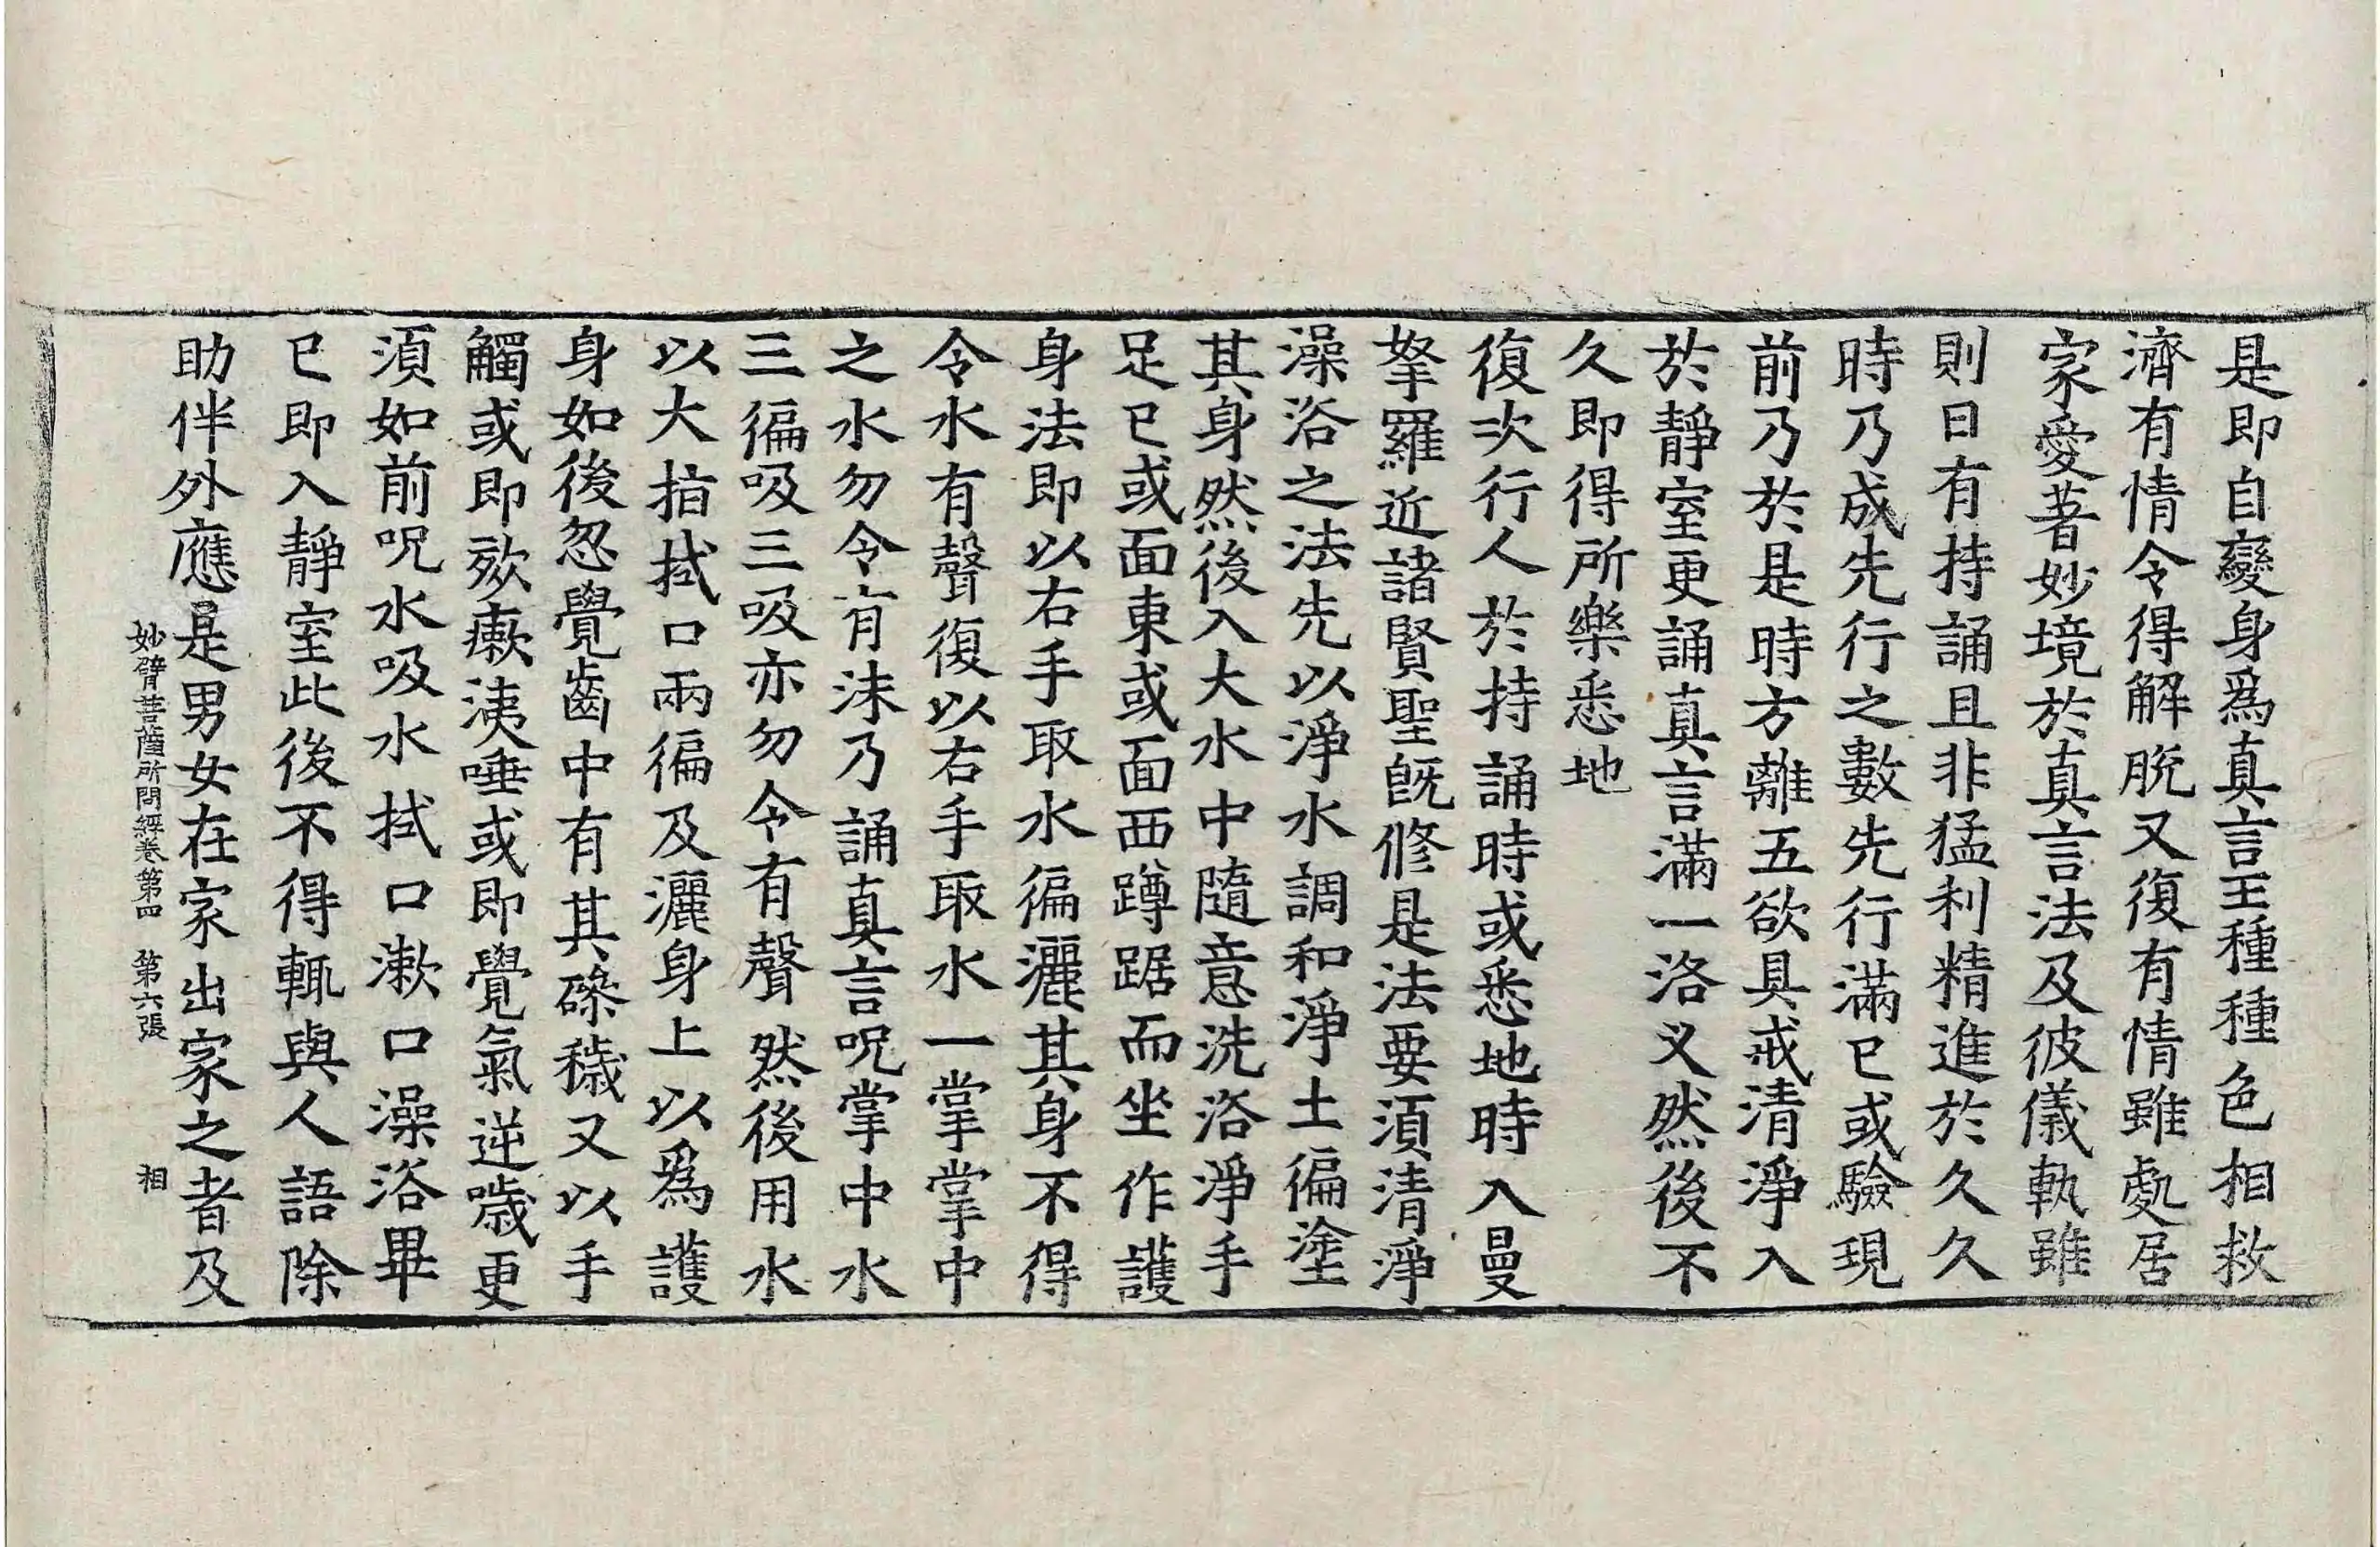 是即自變身爲真言王種種色相救
濟有情令得解脫又復有情雖處居
家愛著妙境於真言法及彼儀軌雖
則日有持誦且非猛利精進於久久
時乃成先行之數先行滿已或驗現
前乃於是時方離五欲具戒清淨入
於靜室更誦真言滿一洛叉然後不
久即得所樂悉地
復次行人於持誦時或悉地時入曼
拏羅近諸賢聖旣修是法要須清淨
澡浴之法先以淨水調和淨土徧塗
其身然後入大水中隨意洗浴淨手
足已或面東或面西蹲踞而坐作護
身法即以右手取水徧灑其身不得
令水有聲復以右手取水一掌掌中
之水勿令有沫乃誦真言呪掌中水
三徧吸三吸亦勿令有聲然後用水
以大指拭口兩徧及灑身上以爲護
身如後忽覺齒中有其磣穢又以手
觸或即欬瘶洟唾或即覺氣逆噦更
須如前呪水吸水拭口漱口澡浴畢
已即入靜室此後不得輒與人語除
助伴外應是男女在家出家之者及
妙臂菩薩所問經卷第四　第六張　相